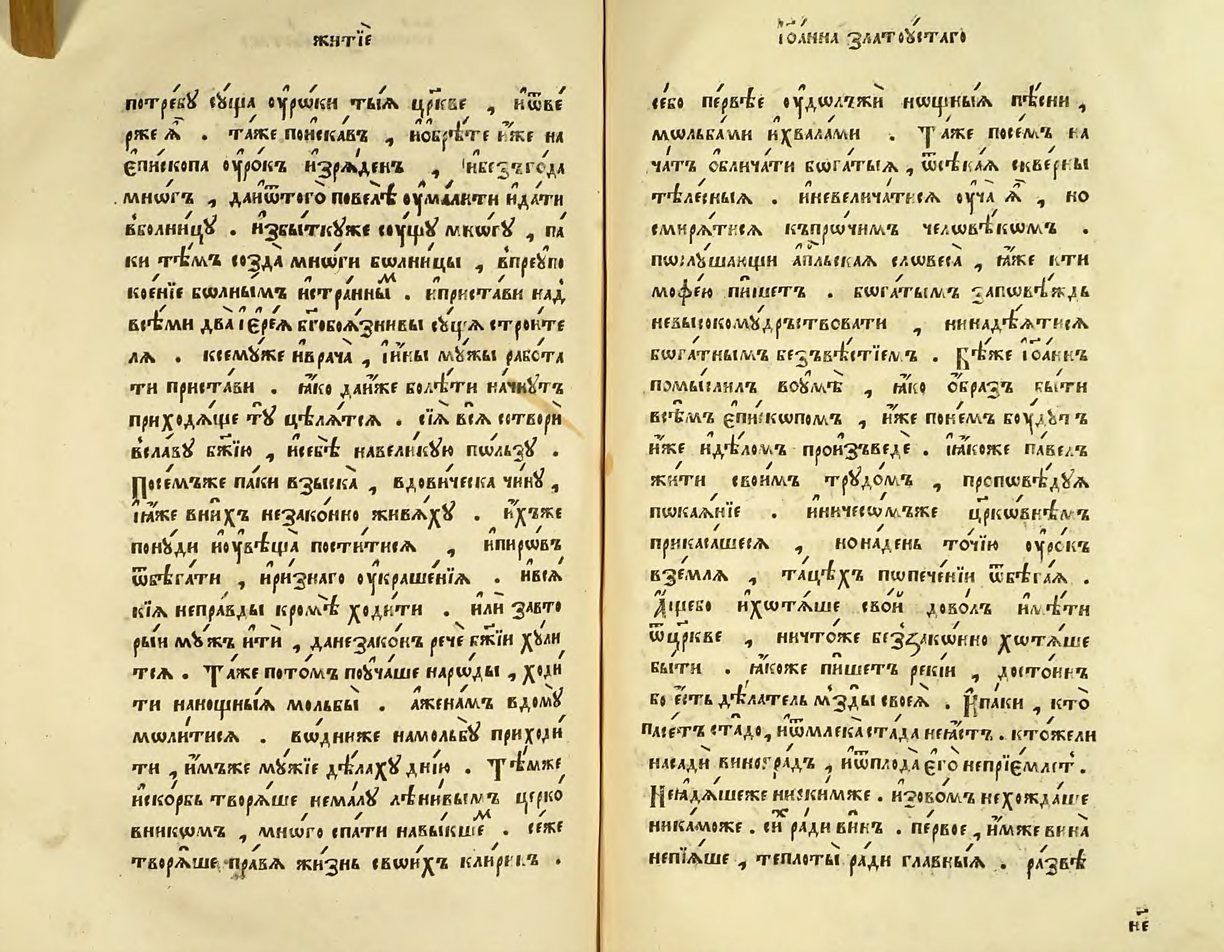 житїѐ
потре́бꙋ сꙋ́ща ᲂу҆рѡ́ки ты́ѧ цр҃кве , и҆ѿве́
рже ѧ҆̀ . та́же поиска́въ , и҆ѡбрѣ́те и҆́же на
є҆пи́скопа ᲂу҆ро́къ и҆зрѧ́денъ , и҆безъго́да
мно́гъ , даи҆ѿтого̀ повелѣ̀ ᲂу҆ма́лити и҆да́ти
вболни́цꙋ . и҆збы́ткꙋже сꙋ́щꙋ мно́гꙋ , па́
ки тѣ́мъ созда̀ мнѡ́ги бѡлни́цы , впреупо
кое́нїе бѡлны́мъ и҆стра́нныⷨ . и҆приста́ви над̾
всѣ́ми два̀ і҆ере́ѧ бг҃обоѧ́знивы сꙋ́щѧ строи́те
лѧ . ксемꙋ́же и҆врача̀ , і҆и҆́ны мꙋ́жы рабо́та
ти приста́ви . ꙗ҆́ко даи҆́же болѣ́ти начнꙋ́тъ
приходѧ́ще тꙋ̀ цѣлѧ́тсѧ . сїѧ̑ всѧ̑ сотворѝ
вла́вꙋ бж҃їю , и҆себѣ̀ навели́кꙋю пѡ́льзꙋ .
Посе́мъже па́ки взыска̀ , вдови́ческа чи́нꙋ ,
ꙗ҆́же вни́хъ незако́нно живѧ́хꙋ . и҆́хъже
понꙋ́ди и҆ᲂу҆вѣща̀ пости́тисѧ , и҆пирѡ́въ
ѿбѣга́ти , и҆ри́знаго ᲂу҆краше́нїѧ . и҆всѧ́
кїѧ непра́вды кромѣ̀ ходи́ти . и҆лѝ завто
ры́и мꙋ́жъ и҆тѝ , данезако́нъ речѐ бж҃їи хꙋ́ли
тсѧ . Та́же пото́мъ поꙋча́ше наро́ды , ходи́
ти нано́щныѧ мольбы̀ . а҆жена́мъ вдомꙋ̀
мѡли́тисѧ . вѡдни́же намольбꙋ̀ приходи́
ти , и҆́мъже мꙋ́жїе дѣ́лахꙋ дню́ю . Тѣ́мже
и҆ско́рбь творѧ́ше нема́лꙋ лѣни́вымъ церко́
вникѡмъ , мно́го спа́ти навы́кшиⷨ . се́же
творѧ́ше правѧ̀ жи́знь свои́хъ кли́рикъ .
і҆ѡа́нна златоꙋ́стаго
се́бо пе́рвѣе ᲂу҆до́лъжи нѡщны́ѧ пѣ́сни ,
мѡльба́ми и҆хвала́ми . Та́же посе́мъ на
ча́тъ ѡ҆блича́ти бога́тыѧ , ѿсѣка́ѧ скве́рны
тѣле́сныѧ . и҆невелича́тисѧ ᲂу҆ча̀ ѧ҆̀ , но
смирѧ́тисѧ къпрѡ́чимъ человѣ́комъ .
послꙋ́шающїи а҆пⷭ҇льскаѧ словеса̀ , ꙗ҆́же кти
моѳе́ю пи́шетъ . бога́тымъ заповѣ́ждь
невысокомꙋ́дръствовати , нинадѣ́ѧтисѧ
бога́тнымъ безъвѣ́стїемъ . Бѣ́же і҆ѡа́ннъ
помы́слилъ воꙋмѣ̀ , ꙗ҆́ко ѡ҆́бразъ бы́ти
всѣ́мъ є҆пи́скѡпом̾ , и҆́же поне́мъ бꙋ́дꙋтъ
и҆́же и҆дѣ́лом̾ произъведѐ . ꙗ҆́коже па́велъ
жи́ти свои́мъ трꙋдо́мъ , проповѣ́дꙋѧ
покаѧ́нїе . и҆ничесѡ́мъже цр҃ко́внѣмъ
прикаса́шесѧ , нонаде́нь то́чїю ᲂу҆ро́къ
взе́млѧ , та́цѣхъ попече́нїи ѿбѣга́ѧ .
А҆́щебо и҆хотѧ́ше сво́й дово́лъ и҆мѣ́ти
ѿцр҃кве , ничто́же беззако́нно хотѧ́ше
бы́ти . ꙗ҆́коже пи́шетъ реки́и , досто́инъ
бо є҆́сть дѣ́латель мзды̀ своеѧ̀ . И҆па́ки , кто̀
пасе́тъ ста́до , и҆ѿмлека̀ ста́да неꙗ҆́стъ . кто́жели
насадѝ виногра́дъ , и҆ѿплода̀ є҆гѡ̀ непрїе́млет̾ .
Неꙗ҆дѧ́шеже ниски́мже . и҆зово́мъ нехожда́ше
никамо́же . си́хⸯ ра́ди ви́нъ . пе́рвое , и҆́мже вина̀
непїѧ́ше , теплоты̀ ра́ди гла́вныѧ . ра́звѣ
не